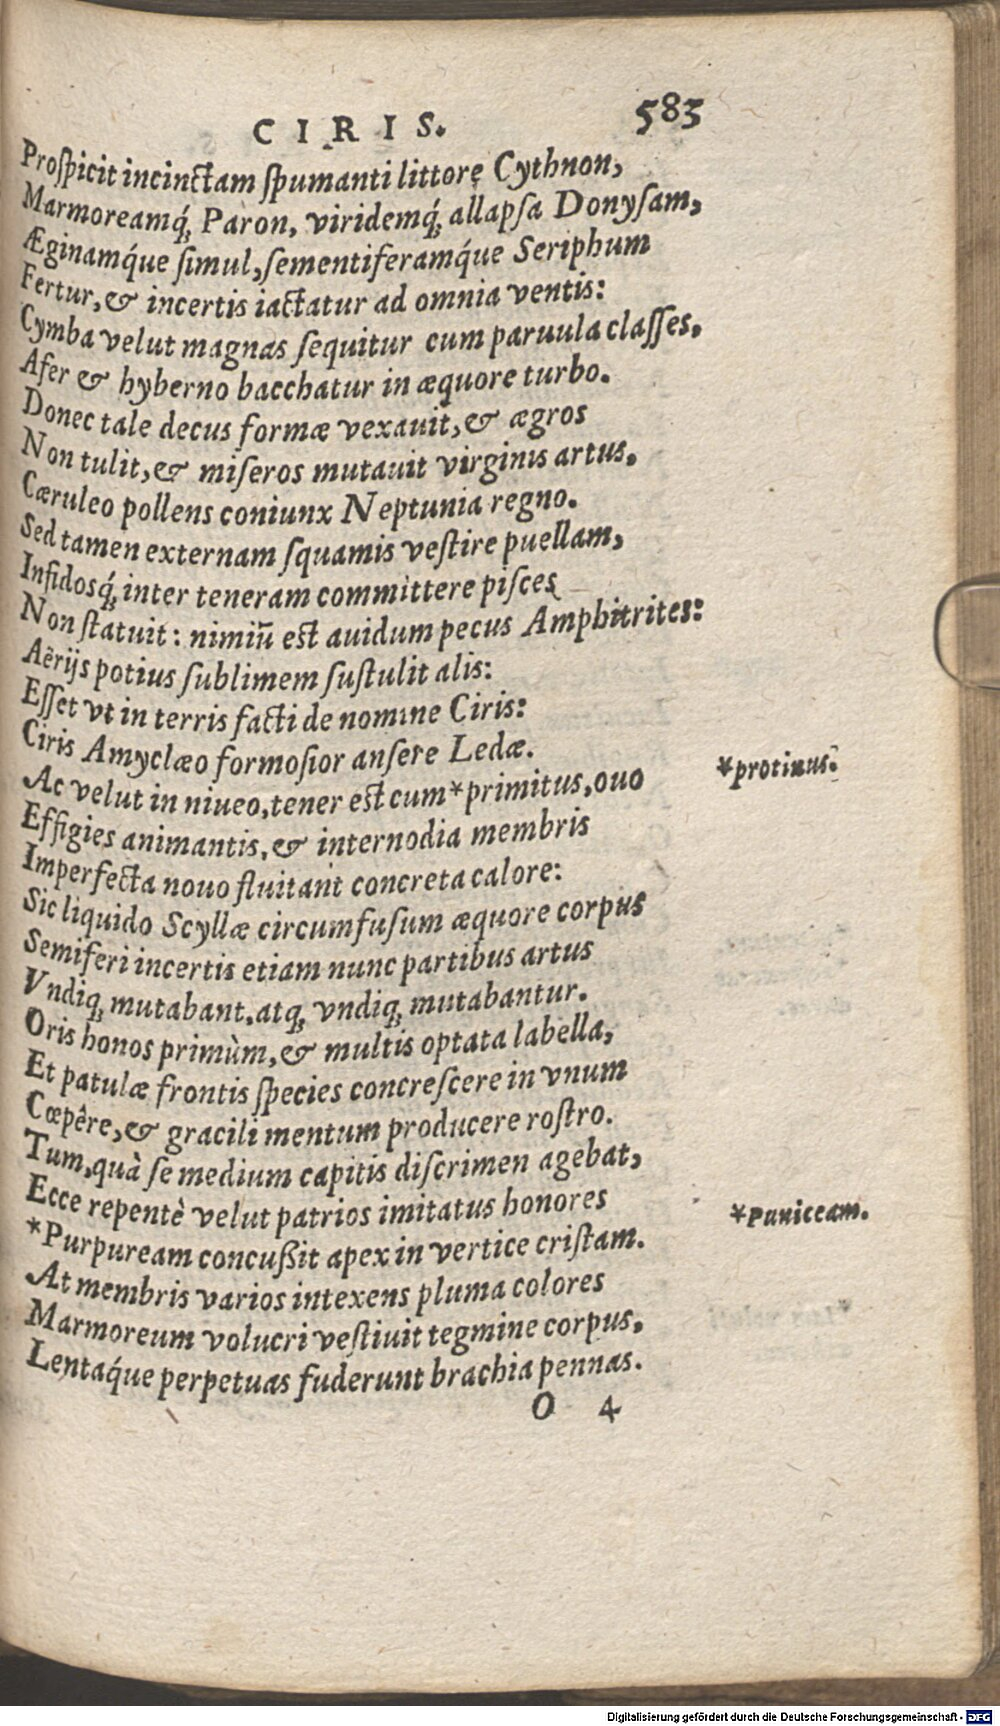 CIRIS. 583
Proſpicit incinctam ſpumanti littore Cythnon,
Marmoreamq́; Paron, viridemq́; allapſa Donyſam,
Æginamq́ue ſimul, ſementiferamq́ue Seriphum
Fertur, & incertis iactatur ad omnia ventis:
Cymba velut magnas ſequitur cum paruula claſſes,
Afer & hyberno bacchatur in æquore turbo.
Donec tale decus formæ vexauit, & ægros
Non tulit, & miſeros mutauit virginis artus,
Cæruleo pollens coniunx Neptunia regno.
Sed tamen externam ſquamis veſtire puellam,
Infidosq́; inter teneram committere piſces
Non ſtatuit: nimiū est auidum pecus Amphitrites:
Aërijs potius ſublimem ſuſtulit alis:
Eſſet vt in terris facti de nomine Ciris:
Ciris Amyclæo formoſior anſere Ledæ.
Ac velut in niueo, tener est cum *primitus, ouo *protinus.
Effigies animantis, & internodia membris
Imperfecta nouo fluitant concreta calore:
Sic liquido Scyllæ circumfuſum æquore corpus
Semiferi incertis etiam nunc partibus artus
Vndiq; mutabant, atq; vndiq; mutabantur.
Oris honos primùm, & multis optata labella,
Et patulæ frontis ſpecies concreſcere in vnum
Cœpêre, & gracili mentum producere roſtro.
Tum, quà ſe medium capitis diſcrimen agebat,
Ecce repentè velut patrios imitatus honores
*Purpuream concußit apex in vertice criſtam. *Puniceam.
At membris varios intexens pluma colores
Marmoreum volucri veſtiuit tegmine corpus,
Lentaq́ue perpetuas fuderunt brachia pennas.
O 4
Digitalisierung gefördert durch die Deutsche Forschungsgemeinschaft - DFG